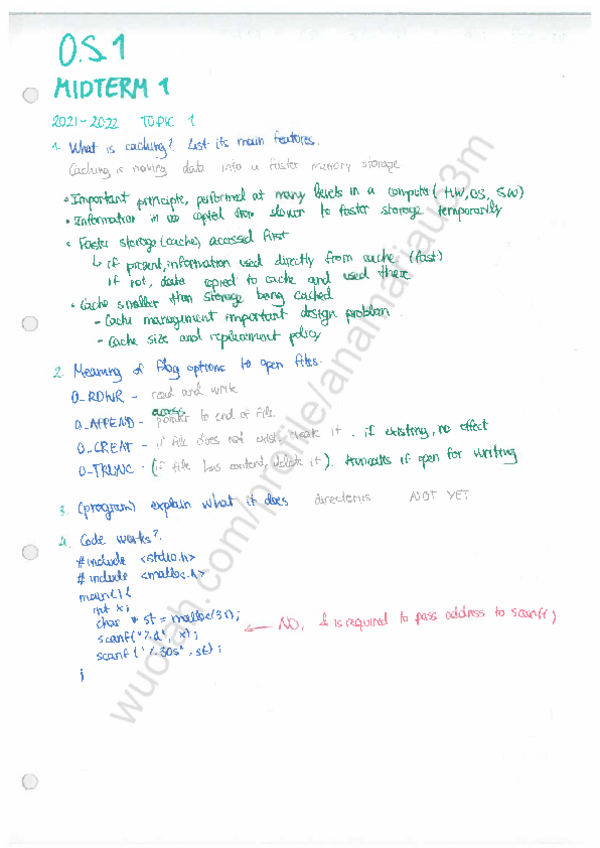 O.S.1
MIDTERM 1
2021-2022 TOPIC 1
1. What is caching? List its main features.
Caching is moving data into a faster memory storage
• Important principle, performed at many levels in a computer (HW, OS, SW)
• Information in use copied from slower to faster storage temporarily
• Faster storage (cache) accessed first
↳ if present, information used directly from cache (fast)
if not, data copied to cache and used there
• Cache smaller than storage being cached
- Cache management important design problem
- Cache size and replacement policy
2. Meaning of flag options to open files.
O_RDWR - read and write
access
O_APPEND - pointer to end of file
O_CREAT - if file does not exist, create it. if existing, no effect
O_TRUNC - (if file has content, delete it). truncates if open for writing
3. (program) explain what it does directories NOT YET
4. Code works?
#include <stdio.h>
#include <malloc.h>
main(){
int x;
char * st = malloc(31);
scanf("%d", x); ← NO, & is required to pass address to scanf()
scanf("%30s", st);
}
wuolah.com/profile/anamafiauc3m